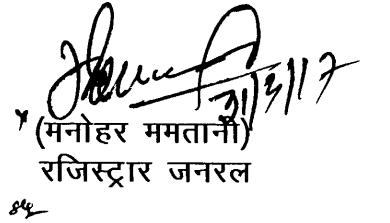 31/3/17
(मनोहर ममतानी)
रजिस्ट्रार जनरल